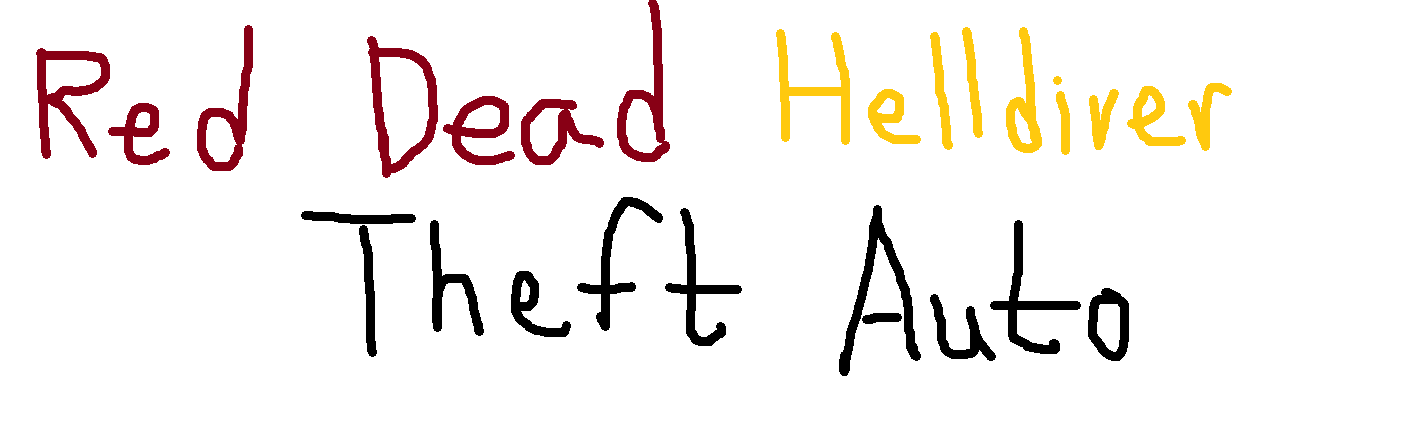 Red Dead Helldiver
Theft Auto